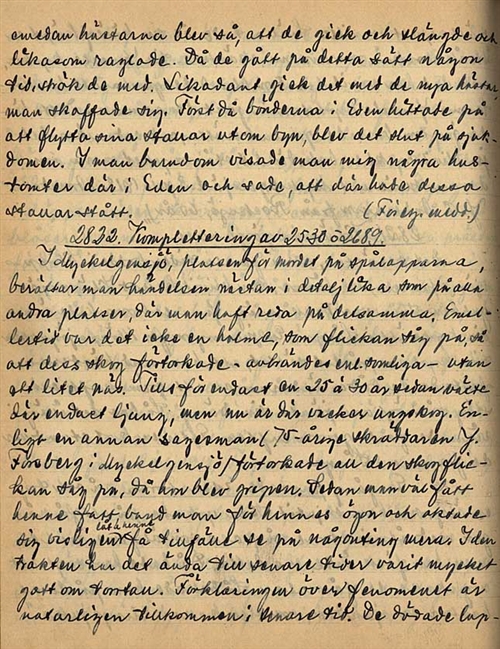 emedan hästarna blev så, att de gick och slängde och
likasom raglade. Då de gått på detta sätt någon
tid, strök de med. Likadant gick det med de nya hästar
man skaffade sig. Först då bönderna i Eden hittade på
att flytta sina stallar utom byn, blev det slut på sjuk-
domen. I man barndom visade man mig några hus-
tomter där i Eden och sade, att där hade dessa
stallar stått. (Företg. medd.)
2832. Komplettering av 2530 o 2689.
I Myckelgensjö, platsen för mordet på spålapparna,
berättar man händelsen nästan i detalj lika som på alla
andra platser, där man haft reda på detsamma. Emel-
lertid var det icke en holme, som flickan såg på, så
att dess skog förtorkade - avbrändes enl. somliga - utan
ett litet näs. Tills för endast en 25 à 30 år sedan växte
där endast ljung, men nu är där vacker ungskog. En-
ligt en annan sagesman (75-årige skräddaren J.
Forsberg i Myckelgensjö) förtorkade all den skog flic-
kan såg på, då hon blev gripen. Sedan man väl fått
henne fatt band man för hennes ögon och aktade
sig visligen få tillfälle se på någonting mera. I den
låta henne
trakten har det ända till senare tider varit mycket
gott om torrtall. Förklaringen över fenomenet är
naturligen tillkommen i senare tid. De dödade lap-